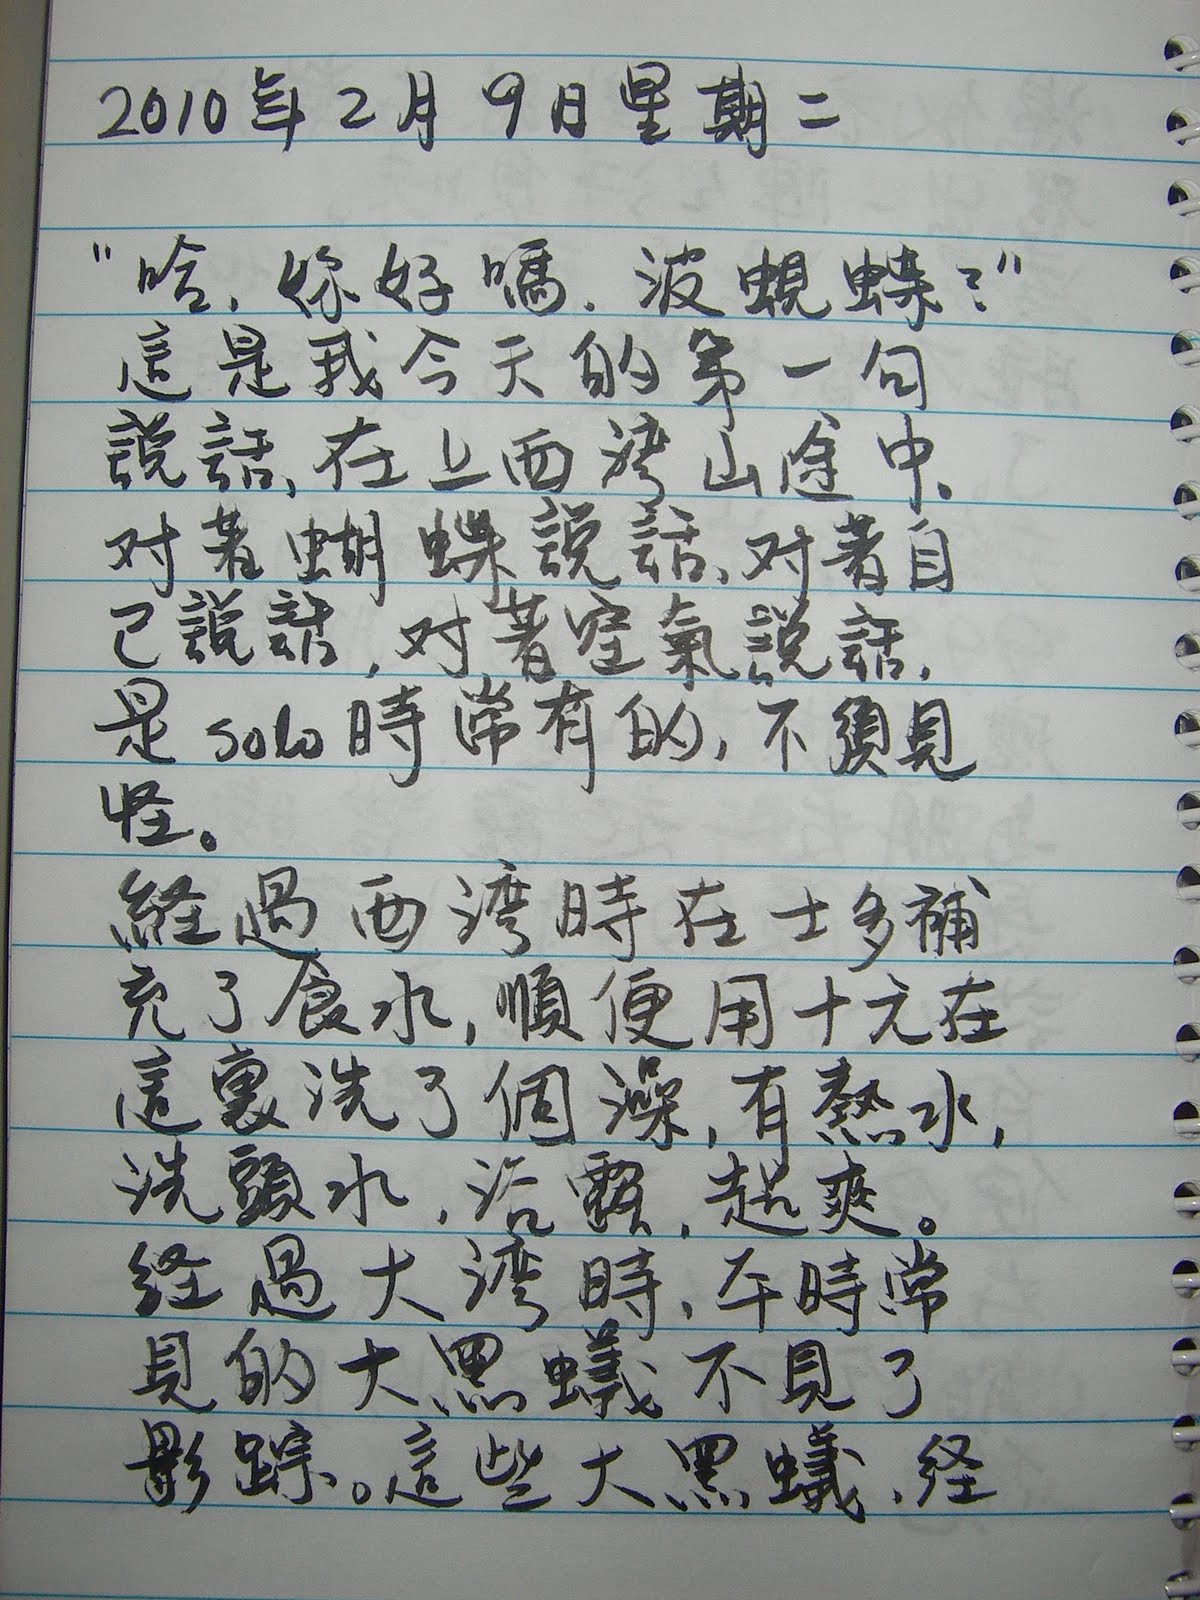 2010年2月9日星期二
"哈,你好嗎,波蜆蝶?"
這是我今天的第一句
說話,在上西湾山途中,
对著蝴蝶說話,对著自
己說話,对著空氣說話,
是solo時常有的,不須見
怪。
経過西湾時在士多補
充了食水,順便用十元在
這裏洗了個澡,有熱水,
洗頭水,浴露,超爽。
経過大湾時,平時常
見的大黑蟻不見了
影踪。這些大黑蟻,経